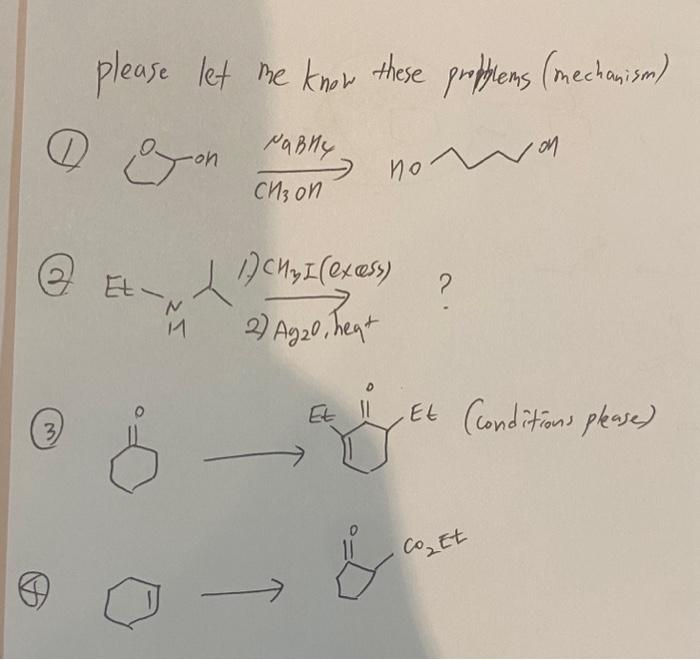 please let me know these problems (mechanism)
① O OH NaBH4 CH3OH HO OH
② Et N H 1) CH3I (excess) 2) Ag2O, heat ?
③ O Et O Et (conditions please)
④ O CO2Et